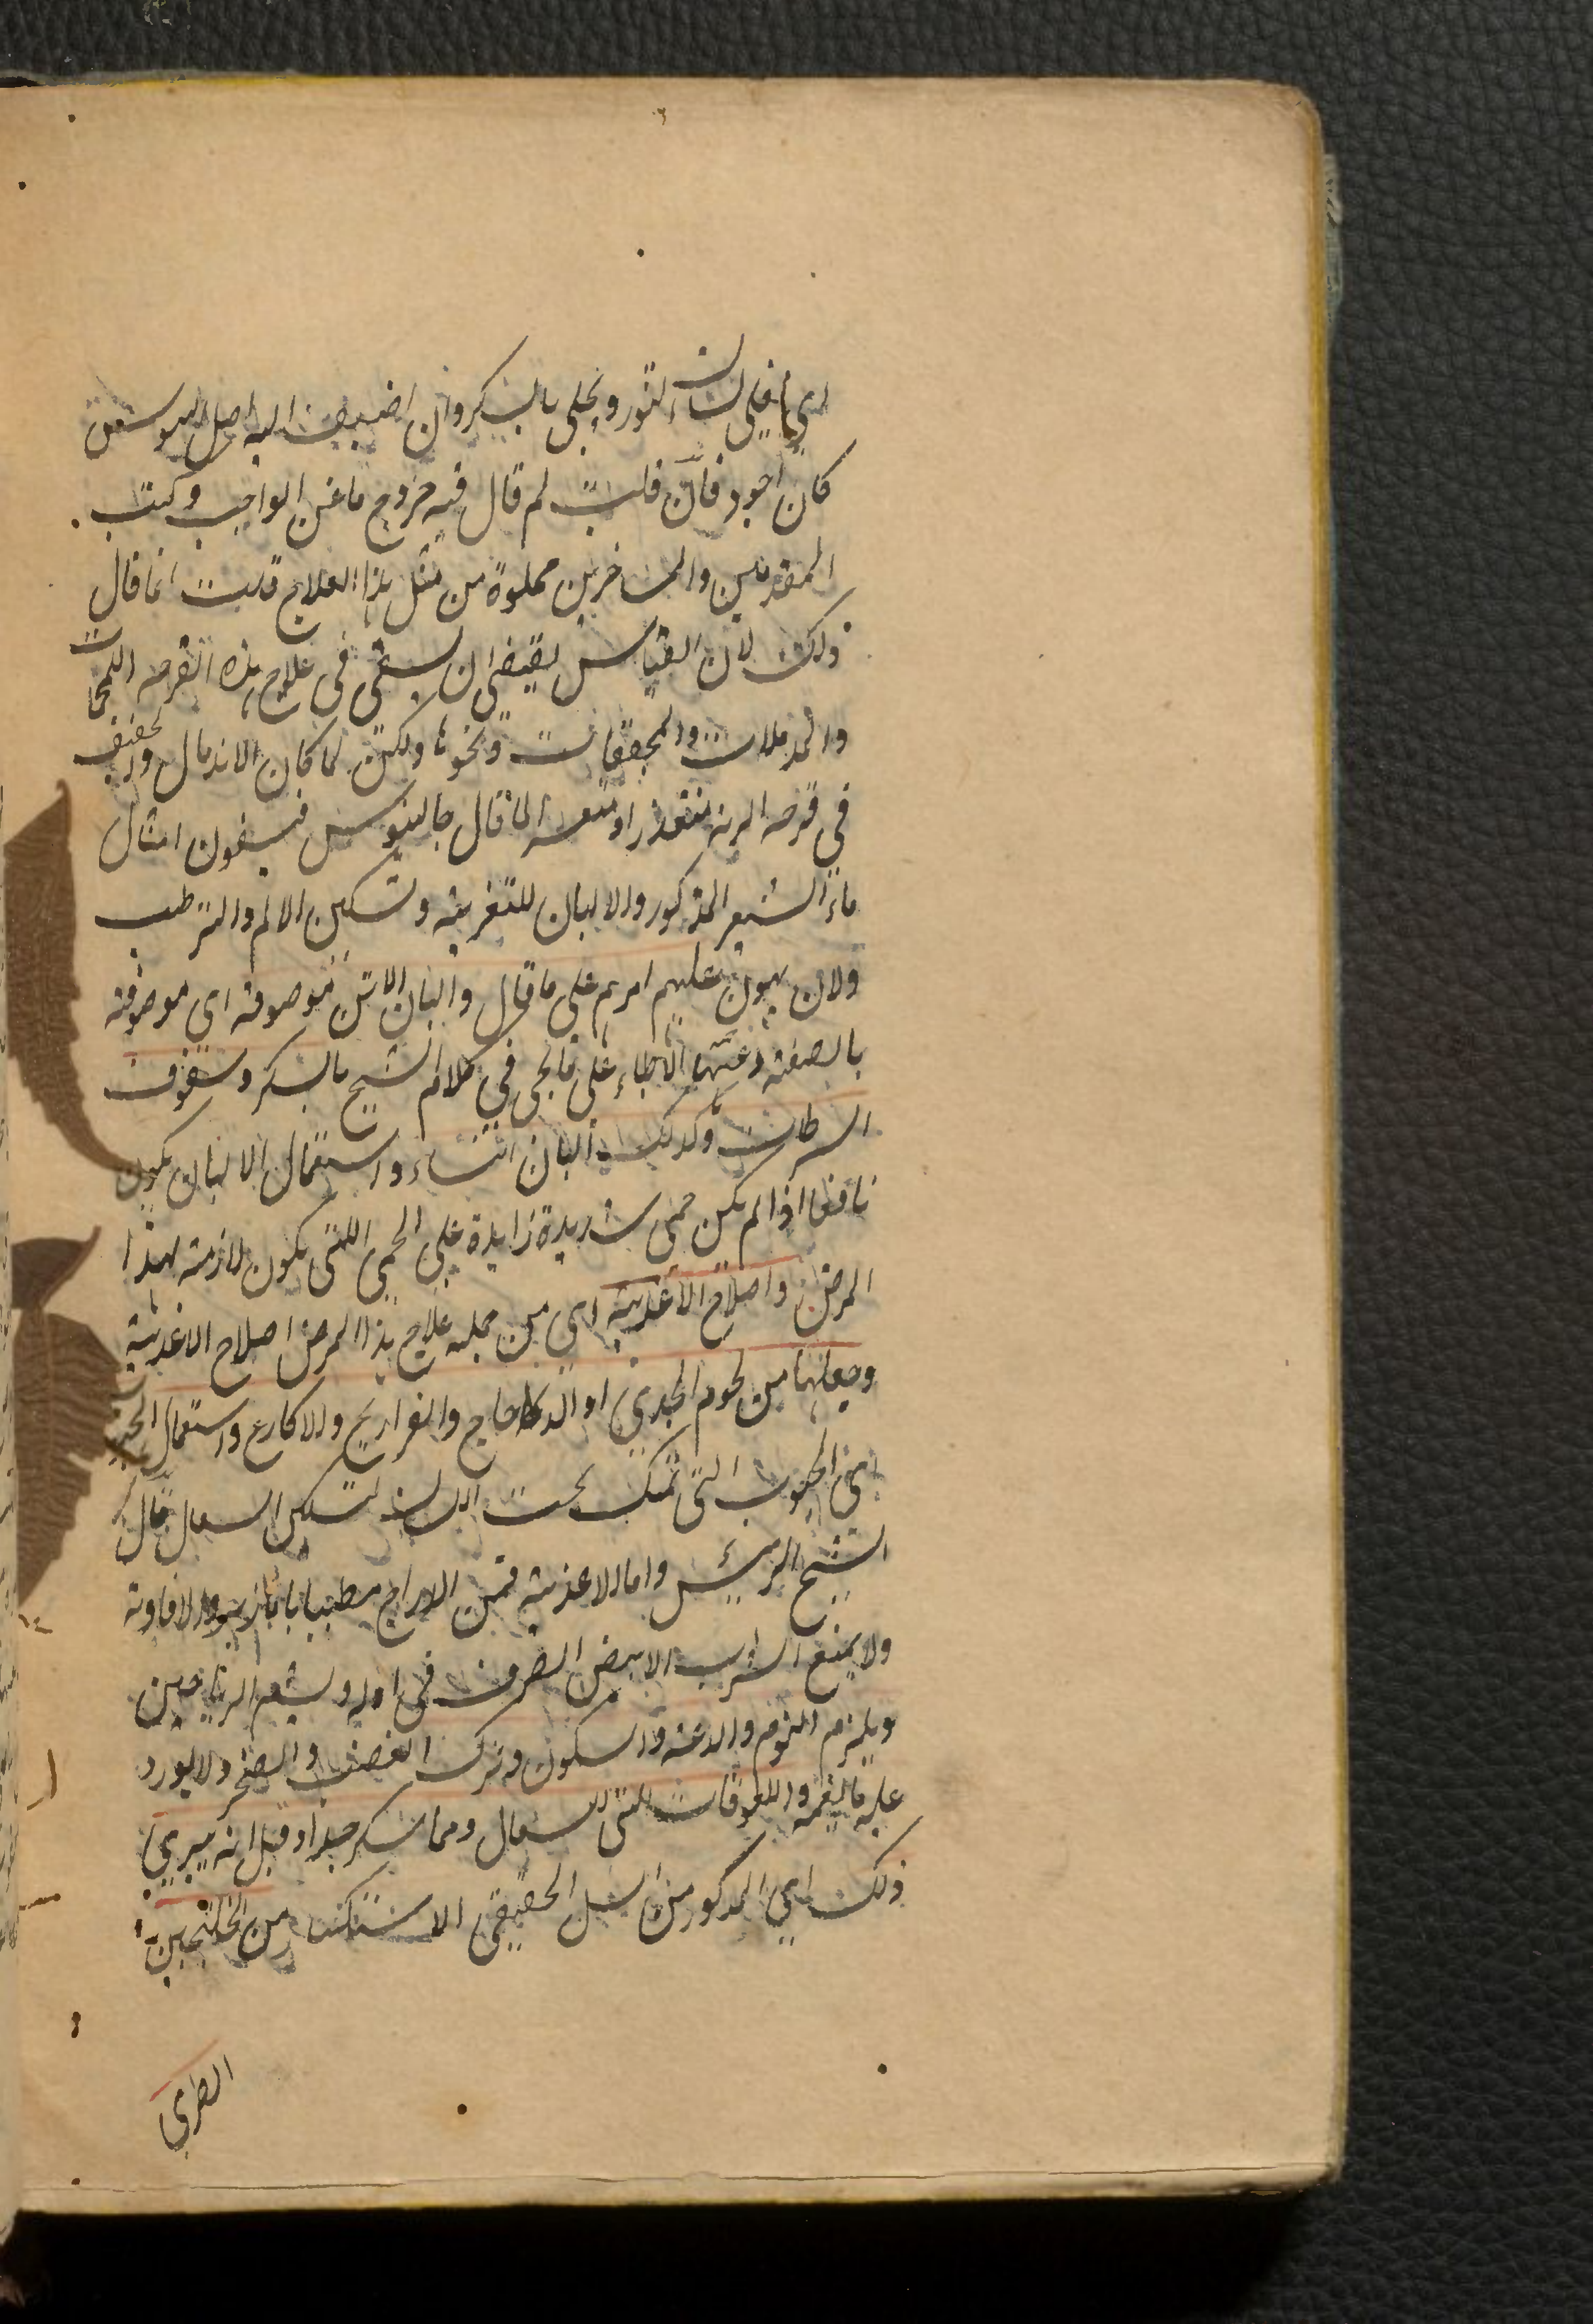 اى اغلى لسان الثور ويحلى بالسكر وان اضيف اليه اصل السوسن
كان اجود فان قلت لم قال فيه خروج ما عن الواجب وكتب
المتقدمين والمتاخرين مملوة من مثل هذا العلاج قلت انما قال
ذلك لان القياس يقتضى ان يسقى فى علاج هذه القرحه اللحمات
والمدملات والمجففات ونحوها ولكن لما كان الاندمال والتجفيف
فى قرحه الريه متعذرا او متعسرا لما قال جالينوس فيسقون امثال
ماء الشعير المذكور والالبان للتغريه وتسكين الالم والترطيب
ولان يهون عليهم امرهم على ما قال والبان الاتن موصوفة اى موصوفة
بالصفة وعينها الاطباء على ما يجى فى كلام الشيخ بالسكر وسفوف
السرطان وكذلك البان النساء واستعمال الالبان يكون
نافعا اذا لم يكن حمى شديدة زايدة على الحمى اللتى يكون لازمة لهذا
المرض واصلاح الاغذية اى من جمله علاج هذا المرض اصلاح الاغذية
وجعلها من لحوم الجدى او الدجاج والفراريج والاكارع واستعمال الحب
اى الحبوب التى تمسك تحت اللسان لتسكين السعال قال
الشيخ الرئيس واما الاغذية فمن الدراج مطيبا بابازير والافاوية
ولا يمنع الشراب الابيض الصرف فى اوله ويشم الرياحين
ويلزم النوم والدعة والسكون وترك الغضب والضجر ولا يورد
عليه ما يغمه واللعوقات التى للسعال ومما شكر جدا وقيل انه يبرى
ذلك اى المذكور من السل الحقيقى الاستكثار من الخلنجبين
الطرى